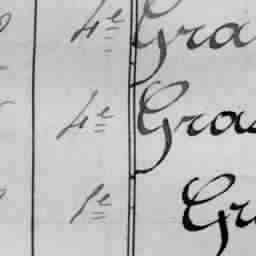 4e Gra
4e Gras
1e Gr